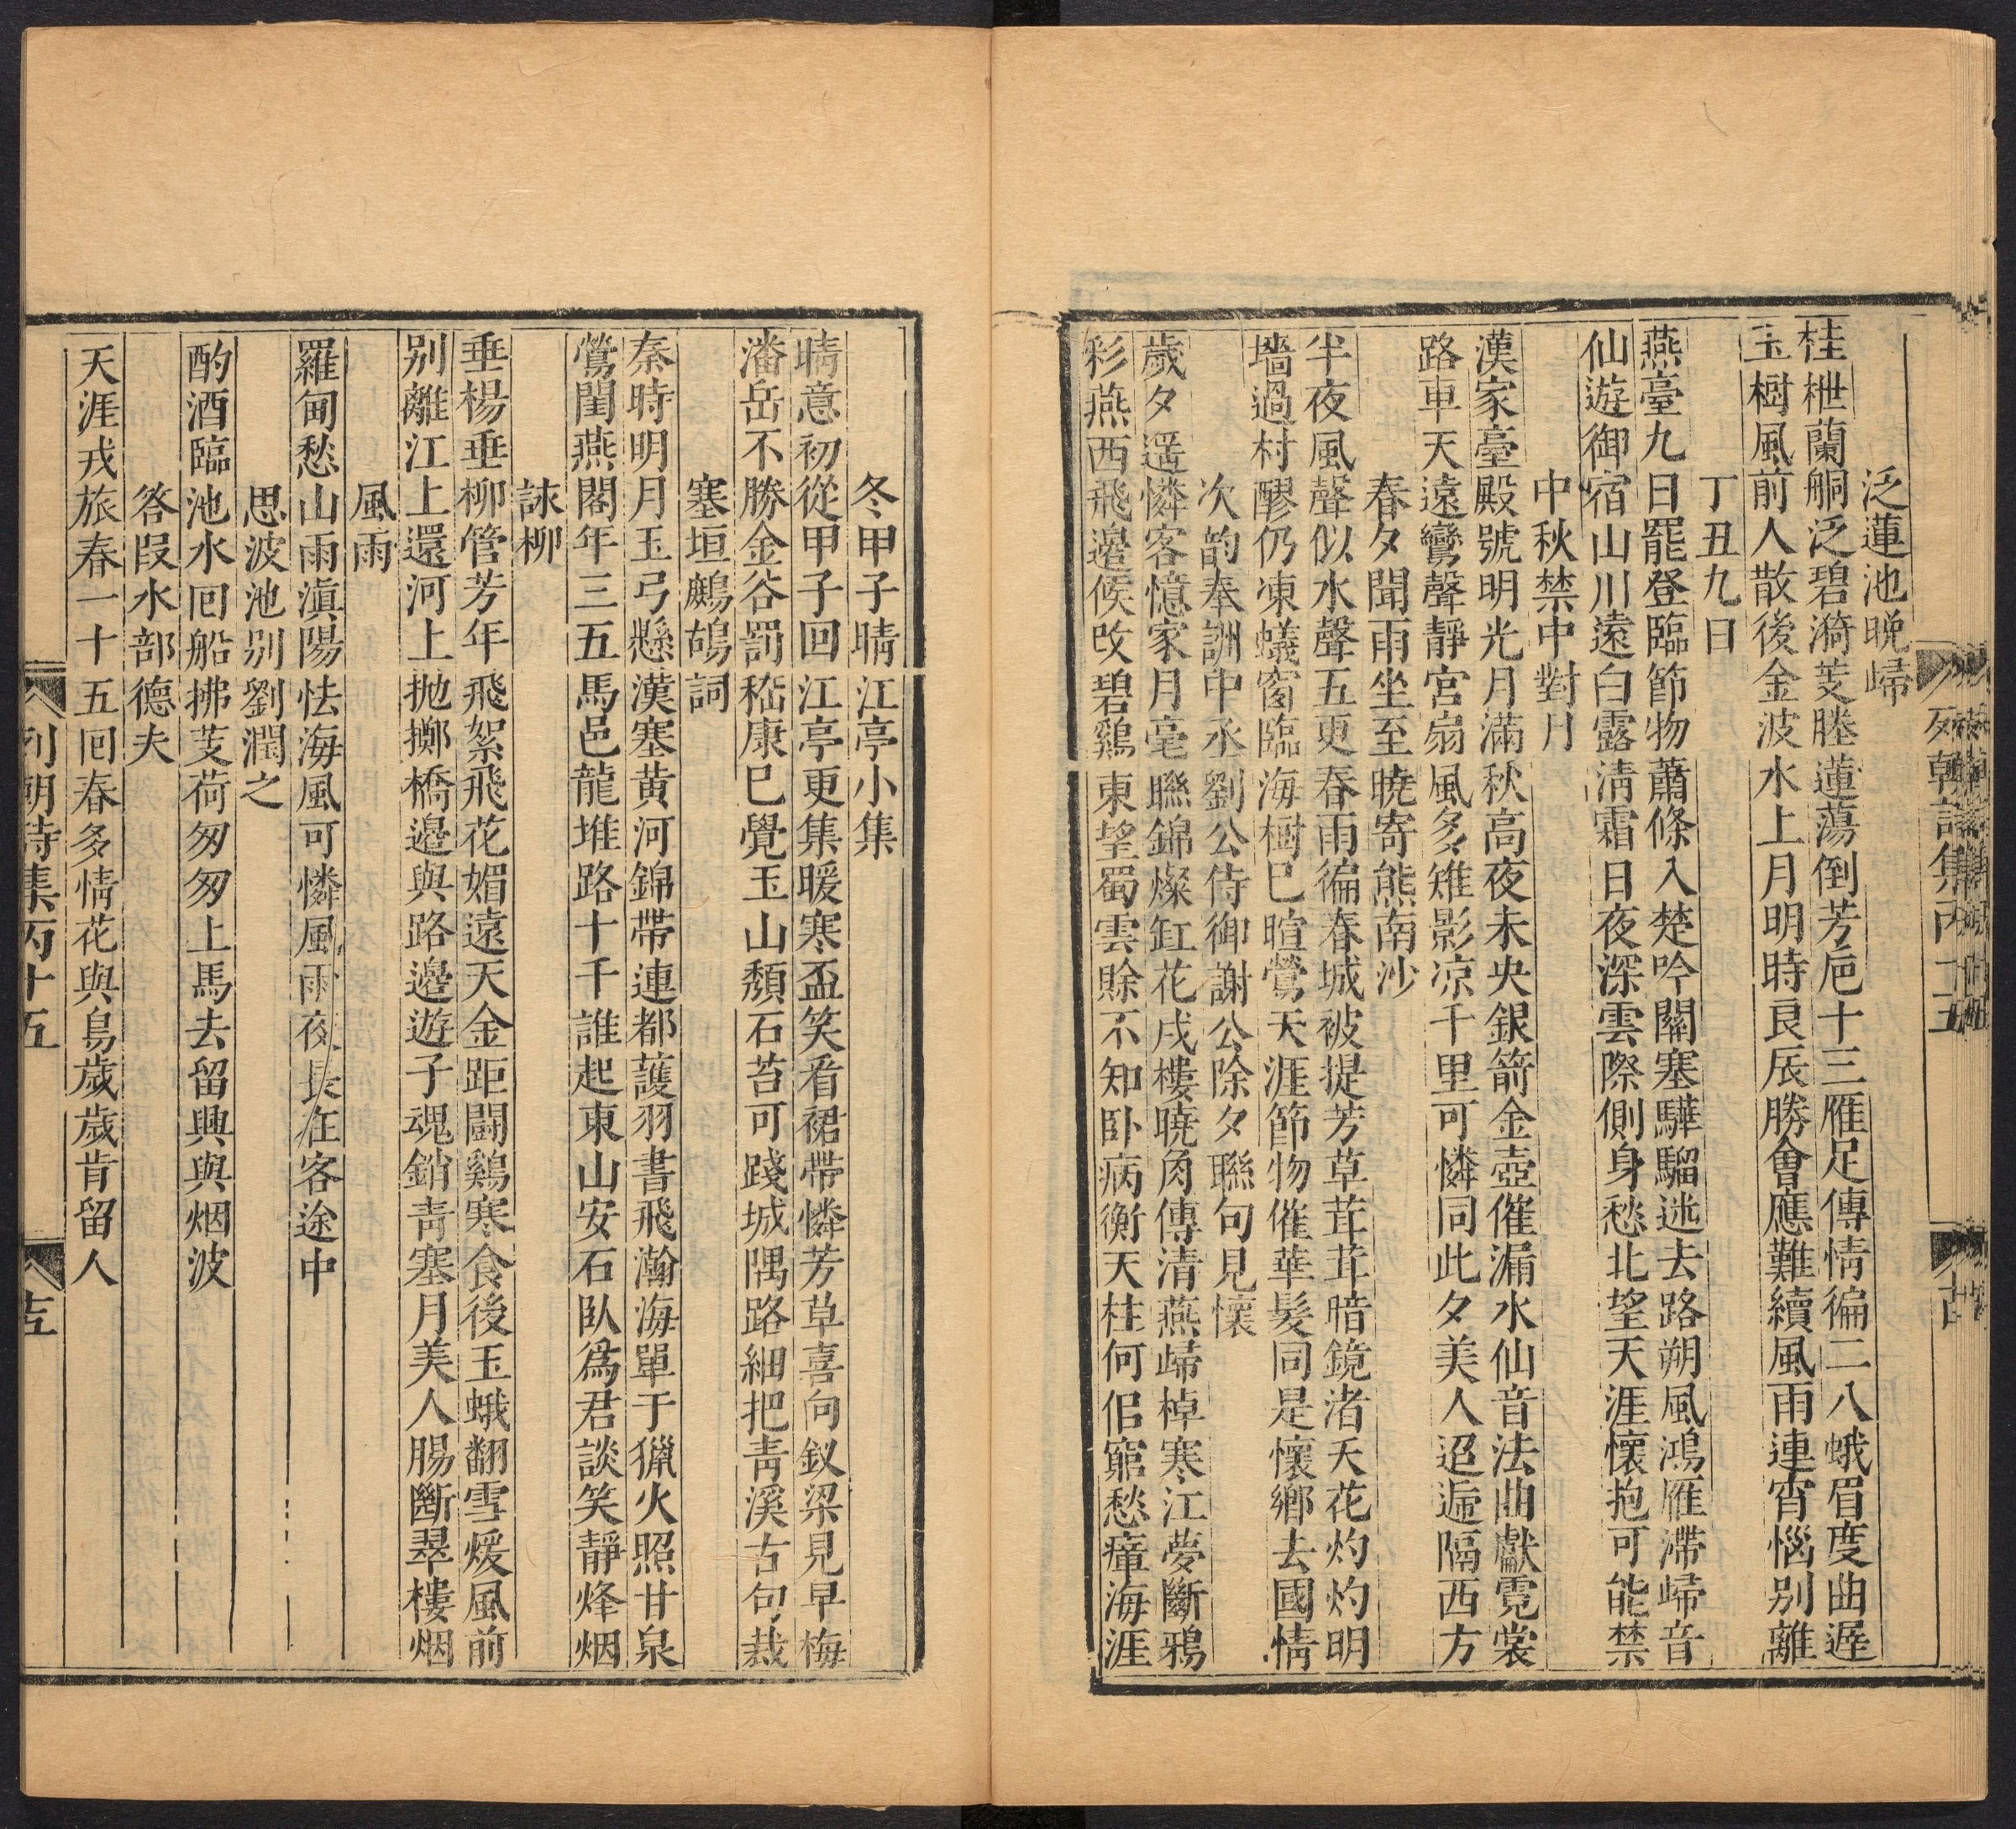 泛蓮池晚歸
桂枻蘭舸泛碧漪芰塍蓮蕩倒芳巵十三雁足傳情徧二八蛾眉度曲遲
玉樹風前人散後金波水上月明時良辰勝會應難續風雨連宵惱別離
丁丑九日
燕臺九日罷登臨節物蕭條入楚吟關塞驊騮迷去路朔風鴻雁滯歸音
仙遊御宿山川遠白露清霜日夜深雲際側身愁北望天涯懷抱可能禁
中秋禁中對月
漢家臺殿號明光月滿秋高夜未央銀箭金壺催漏水仙音法曲獻霓裳
路車天遠鸞聲靜宮扇風多雉影凉千里可憐同此夕美人迢遞隔西方
春夕聞雨坐至曉寄熊南沙
半夜風聲似水聲五更春雨徧春城被堤芳草茸茸暗鏡渚夭花灼灼明
墻過村醪仍凍蟻窗臨海樹已暄鶯天涯節物催華髮同是懷鄉去國情
次韵奉訓中丞劉公侍御謝公除夕聯句見懷
歲夕遥憐客憶家月毫聯錦燦缸花戍樓曉角傳清燕歸棹寒江夢斷鴉
彩燕西飛邊候改碧鷄東望蜀雲賒不知卧病衡天柱何佀窮愁瘴海涯
列朝詩集丙十五
冬甲子晴江亭小集
晴意初從甲子回江亭更集暖寒盃笑看裙帶憐芳草喜向釵梁見早梅
潘岳不勝金谷罰嵇康已覺玉山頹石苔可踐城隅路細把青溪古句裁
塞垣鷓鴣詞
秦時明月玉弓懸漢塞黄河錦帶連都護羽書飛瀚海單于獵火照甘泉
鶯閨燕閣年三五馬邑龍堆路十千誰起東山安石臥爲君談笑靜烽烟
詠柳
垂楊垂柳管芳年飛絮飛花媚遠天金距鬬鷄寒食後玉蛾翻雪煖風前
别離江上還河上抛擲橋邉與路邉遊子魂銷青塞月美人腸斷翠樓烟
風雨
羅甸愁山雨滇陽怯海風可憐風雨夜長在客途中
思波池别劉潤之
酌酒臨池水囘船拂芰荷匆匆上馬去留興與烟波
答叚水部德夫
天涯戎旅春一十五囘春多情花與鳥歲歲肯留人
列朝詩集丙十五